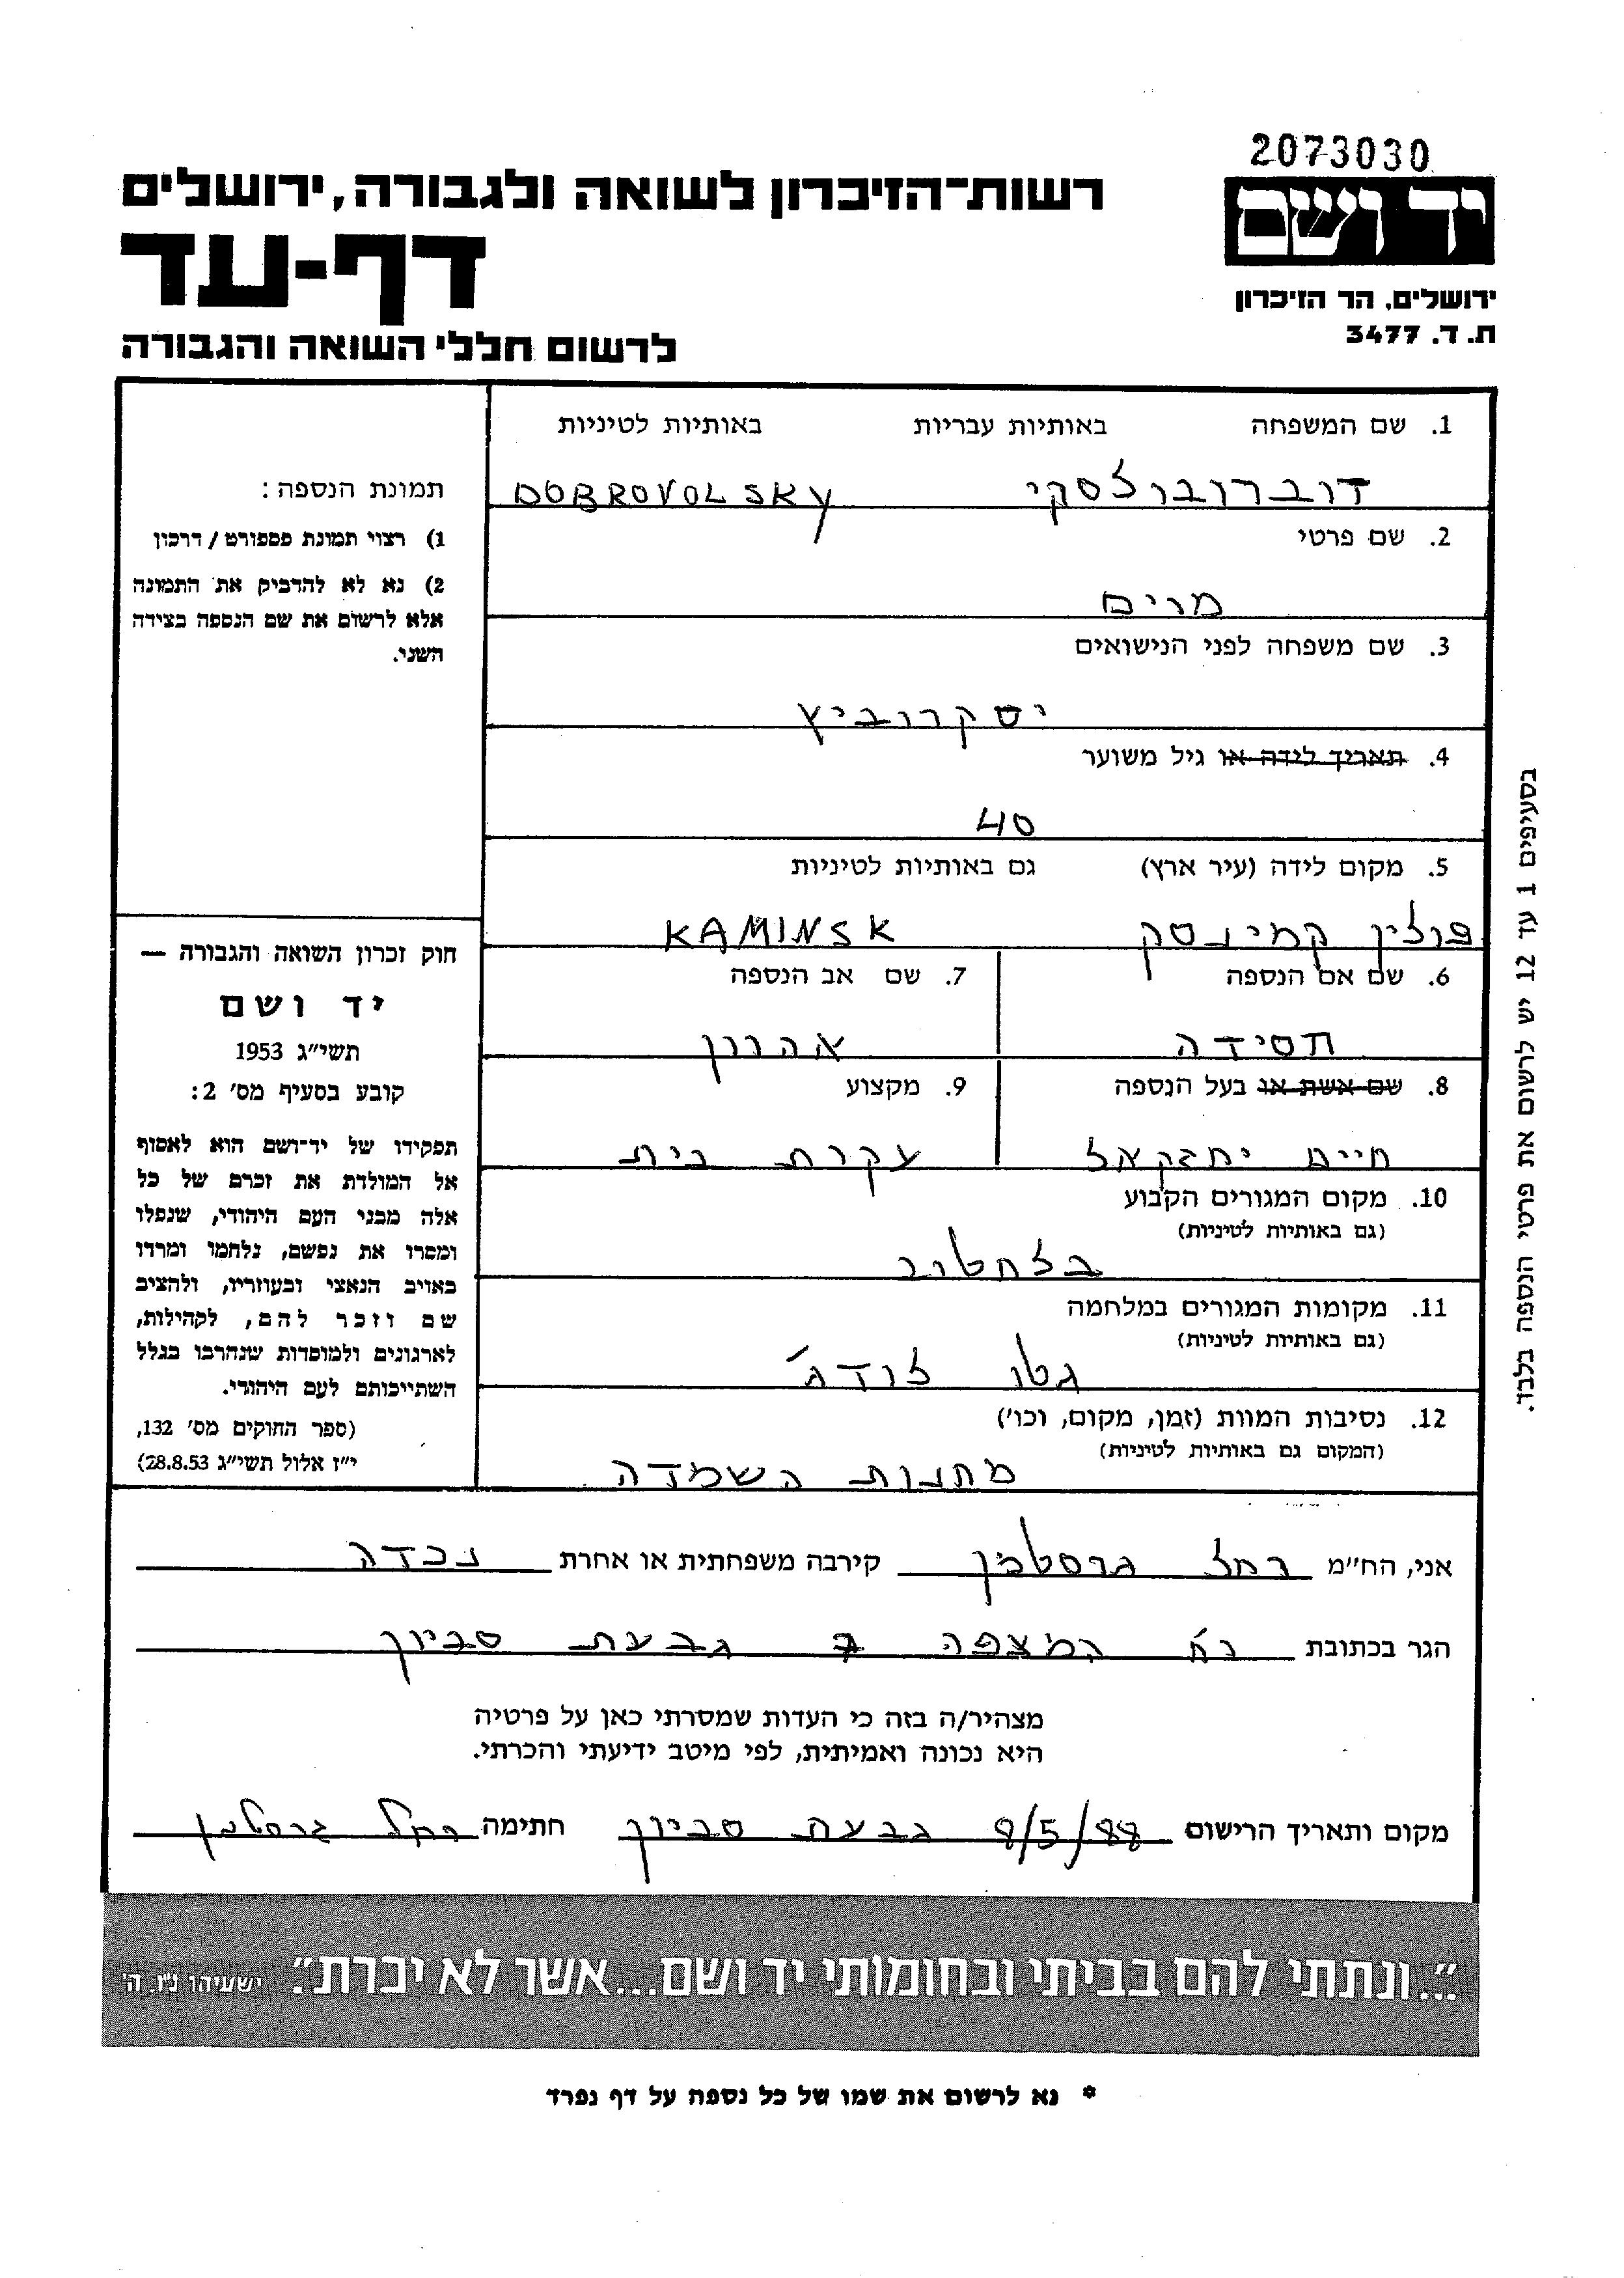 2073030
יד ושם
ירושלים, הר הזיכרון
ת. ד. 3477
רשות־הזיכרון לשואה ולגבורה, ירושלים
דף-עד
לרשום חללי השואה והגבורה
1. שם המשפחה באותיות עבריות באותיות לטיניות
דוברובולסקי DOBROVOLSKY
2. שם פרטי
מרים
3. שם משפחה לפני הנישואים
יסקרוביץ
4. תאריך לידה או גיל משוער
40
5. מקום לידה (עיר ארץ) גם באותיות לטיניות
פולין קמינסק KAMINSK
6. שם אם הנספה 7. שם אב הנספה
חסידה אהרון
8. שם אשת או בעל הנספה 9. מקצוע
חיים יחזקאל עקרת בית
10. מקום המגורים הקבוע
(גם באותיות לטיניות)
בלחטוב
11. מקומות המגורים במלחמה
(גם באותיות לטיניות)
גטו לודג'
12. נסיבות המוות (זמן, מקום, וכו')
(המקום גם באותיות לטיניות)
מחנות השמדה
תמונת הנספה:
1) רצוי תמונת פספורט / דרכון
2) נא לא להדביק את התמונה
אלא לרשום את שם הנספה בצידה
השני.
חוק זכרון השואה והגבורה —
יד ושם
תשי"ג 1953
קובע בסעיף מס' 2:
תפקידו של יד־ושם הוא לאסוף
אל המולדת את זכרם של כל
אלה מבני העם היהודי, שנפלו
ומסרו את נפשם, נלחמו ומרדו
באויב הנאצי ובעוזריו, ולהציב
שם וזכר להם, לקהילות,
לארגונים ולמוסדות שנחרבו בגלל
השתייכותם לעם היהודי.
(ספר החוקים מס' 132,
י"ז אלול תשי"ג 28.8.53)
בסעיפים 1 עד 12 יש לרשום את פרטי הנספה בלבד.
אני, הח"מ רחל גרסטבין קירבה משפחתית או אחרת נכדה
הגר בכתובת רח המצפה 7 גבעת סביון
מצהיר/ה בזה כי העדות שמסרתי כאן על פרטיה
היא נכונה ואמיתית, לפי מיטב ידיעתי והכרתי.
מקום ותאריך הרישום 8/5/88 גבעת סביון חתימה רחל
"...ונתתי להם בביתי ובחומותי יד ושם...אשר לא יכרת". ישעיהו נ"ו, ה'
* נא לרשום את שמו של כל נספה על דף נפרד